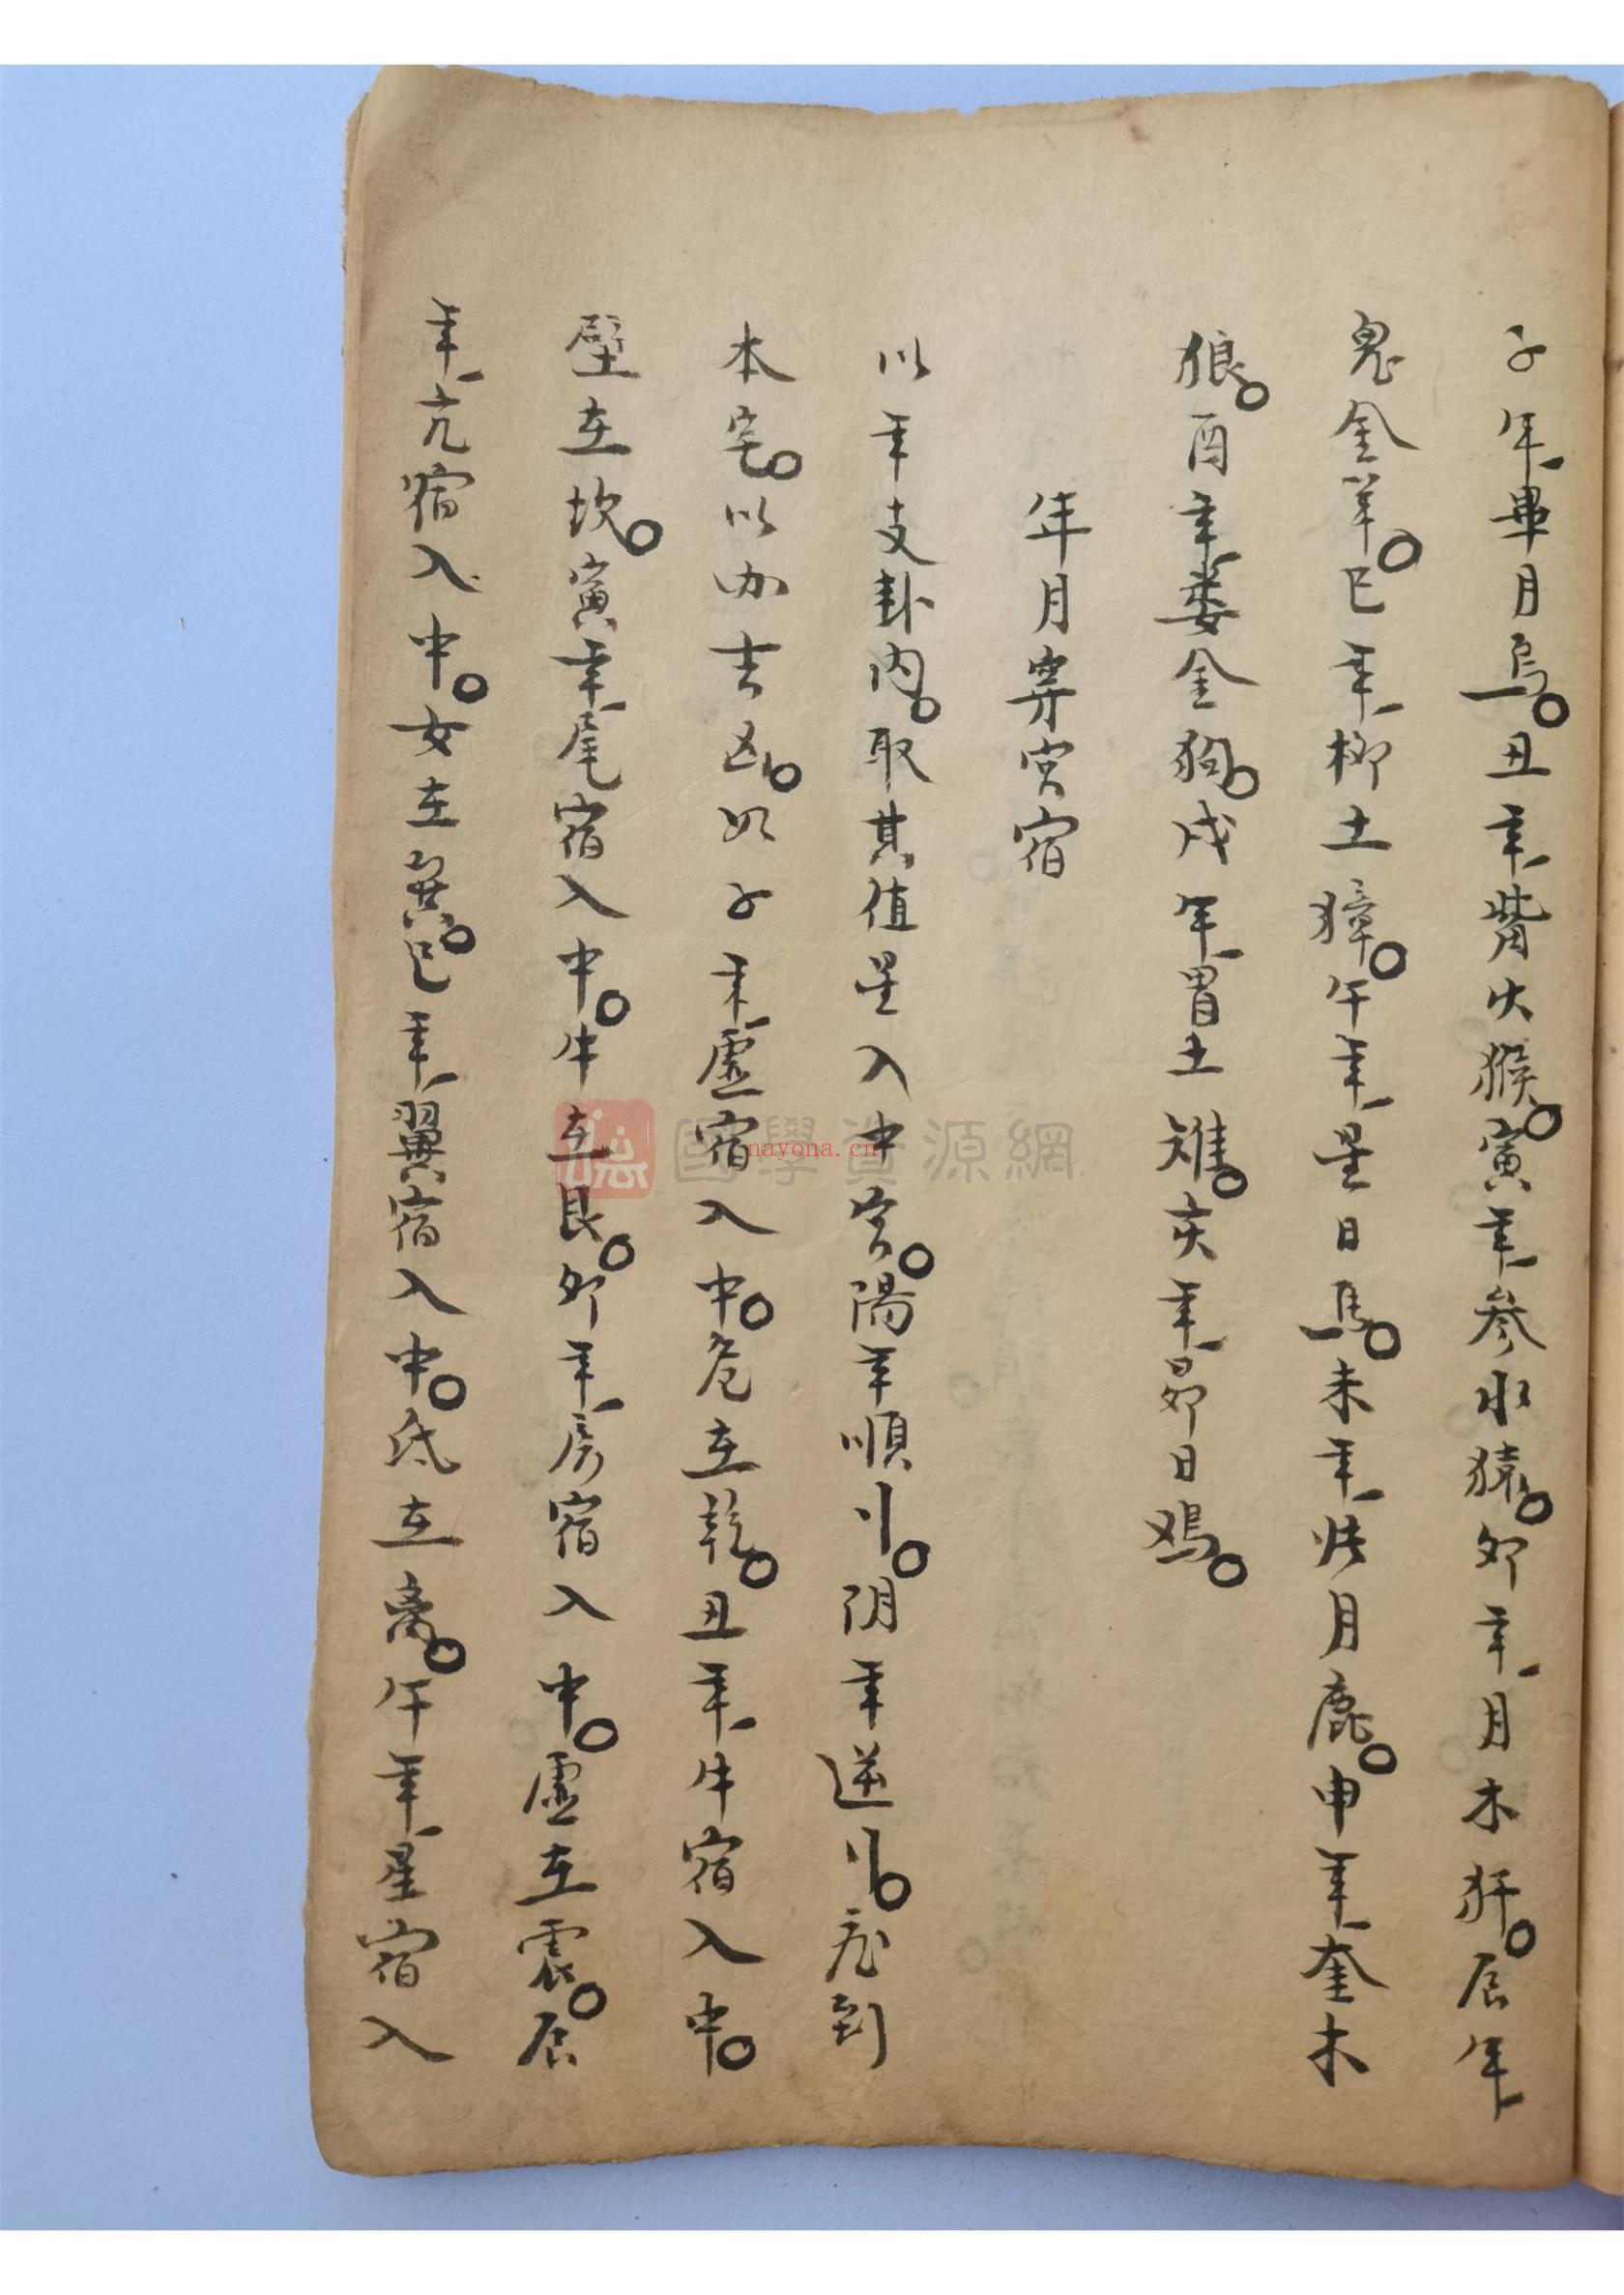 子年畢月烏。丑年觜火猴。寅年参水猿。卯年月木犴。辰年
鬼金羊。巳年柳土獐。午年星日馬。未年張月鹿。申年奎木
狼。酉年娄金狗。戌年胃土雉。亥年昴日鸡。
年月穿宮宿
以年支卦内。取其值星入中宮。陽年順刂。阴年逆刂。庀到
本宅。以加吉凶。如子年虚宿入中。危在乾。丑年牛宿入中。
壁在坎。寅年尾宿入中。牛在艮。卯年房宿入中。虚在震。辰
年亢宿入中。女在巽。巳年翼宿入中。氐在离。午年星宿入
國學資源網
nayona.cn